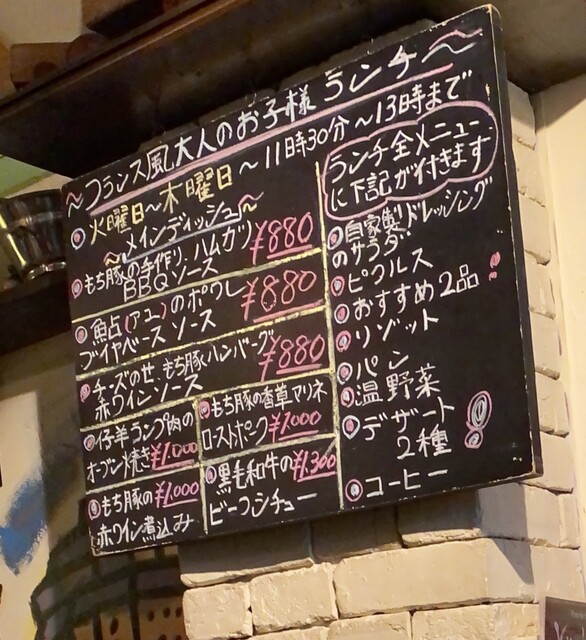 ～フランス風大人のお子様ランチ～
火曜日～木曜日～11時30分～13時まで
～メインディッシュ～
もち豚の手作り、ハムカツ ¥880
BBQソース
魚点(アユ)のポワレ ¥880
ブイヤベースソース
チーズのせ もち豚ハンバーグ ¥880
赤ワインソース
仔羊ランプ肉の
オーブン焼き ¥1,000
もち豚の ¥1,000
赤ワイン煮込み
もち豚の香草マリネ
ローストポーク ¥1,000
黒毛和牛の ¥1,300
ビーフシチュー
ランチ全メニュー
に下記が付きます
自家製ドレッシング
のサラダ
ピクルス
おすすめ2品
リゾット
パン
温野菜
デザート
2種
コーヒー